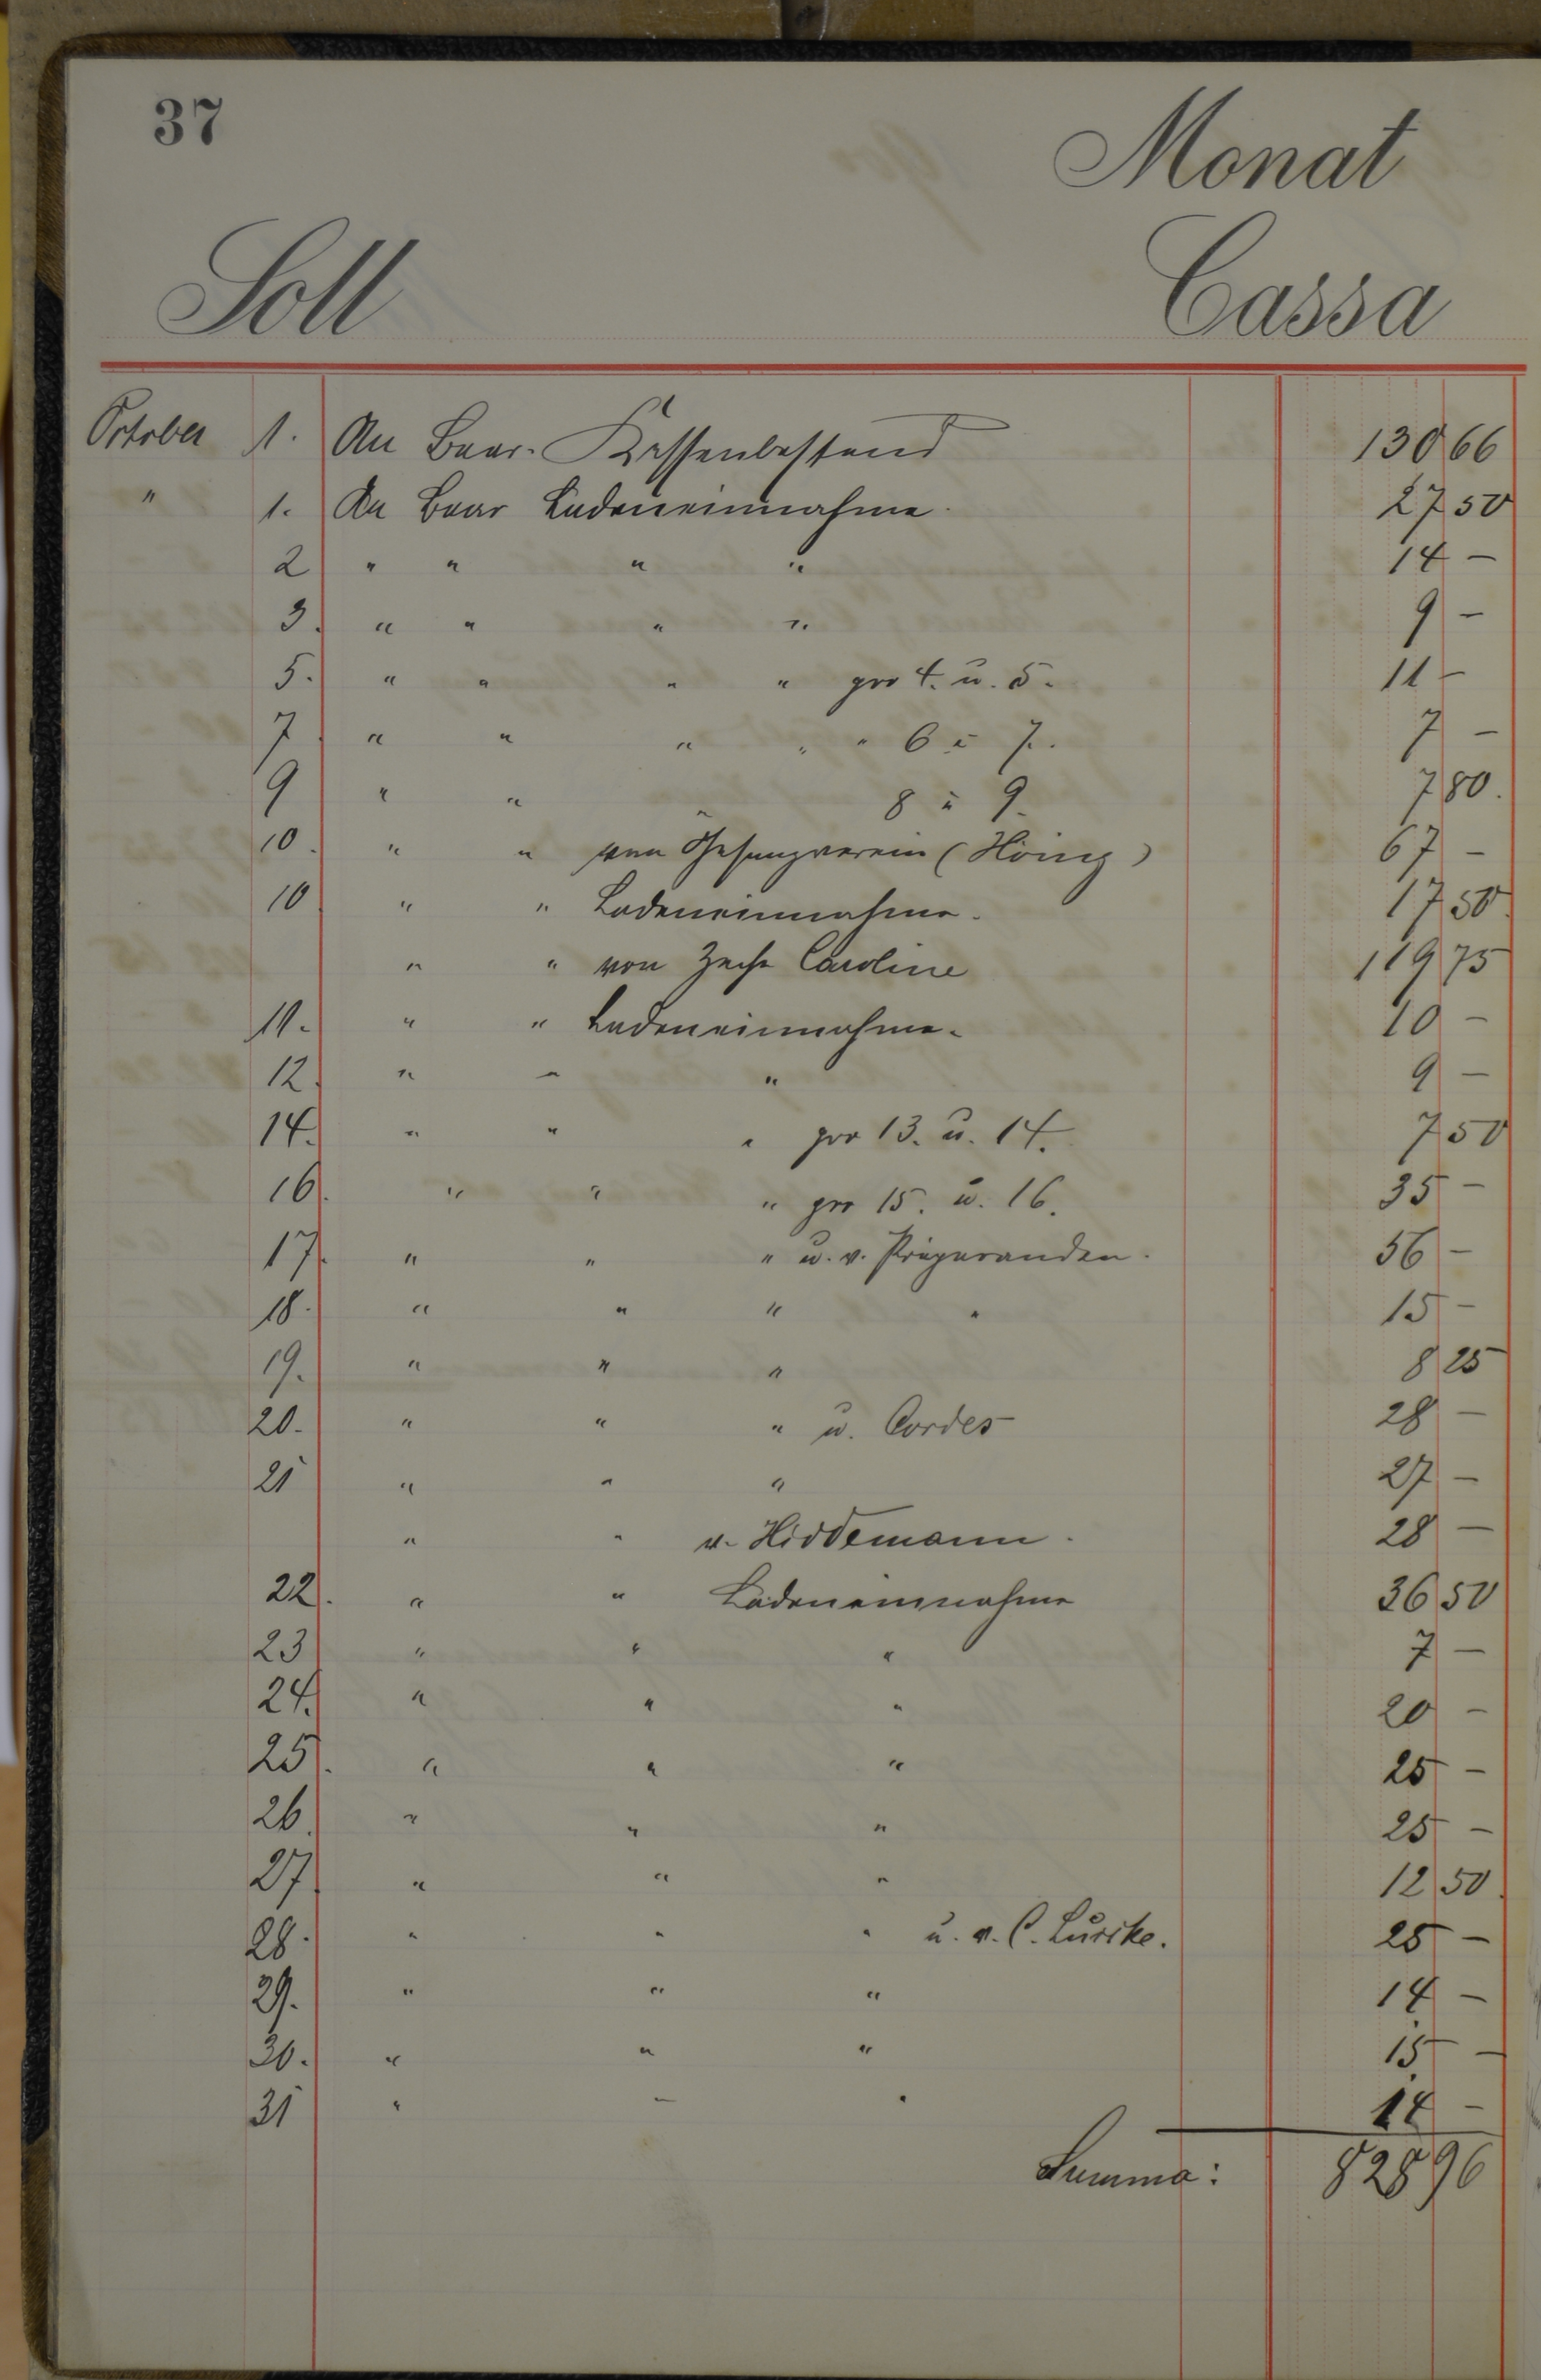 37
Monat
Soll Cassa
October 1. An Baar-Kassenbestand 130 66
" 1. An Baar Ladeneinnahme. 27 50
2 " " " " 14 -
3. " " " " 9 -
5. " " " " pro 4. u. 5. 11 -
7 " " " " " 6 u 7. 7 -
9 " " " 8 u 9. 7 80.
10. " " vom Gesangverein (Hönig) 67 -
10 " " Ladeneinnahme. 17 50
" " von Zeche Caroline 119 75
11. " " Ladeneinnahme. 10 -
12. " " " 9 -
14. " " " pro 13. u. 14. 7 50
16. " " " pro 15. u. 16. 35 -
17. " " " u. v. Präparanden. 56 -
18. " " " " 15 -
19. " " " 8 25
20. " " " u. Cordes 28 -
21 " " " 27 -
" " v. Hiddemann. 28 -
22. " " Ladeneinnahme 36 50
23 " " " 7 -
24. " " " 20 -
25. " " " 25 -
26. " " " 25 -
27. " " " 12 50.
28. " " " u. v. C. 25 -
29. " " " 14 -
30. " " " 15 -
31 " " " 14 -
Summa: 828 96